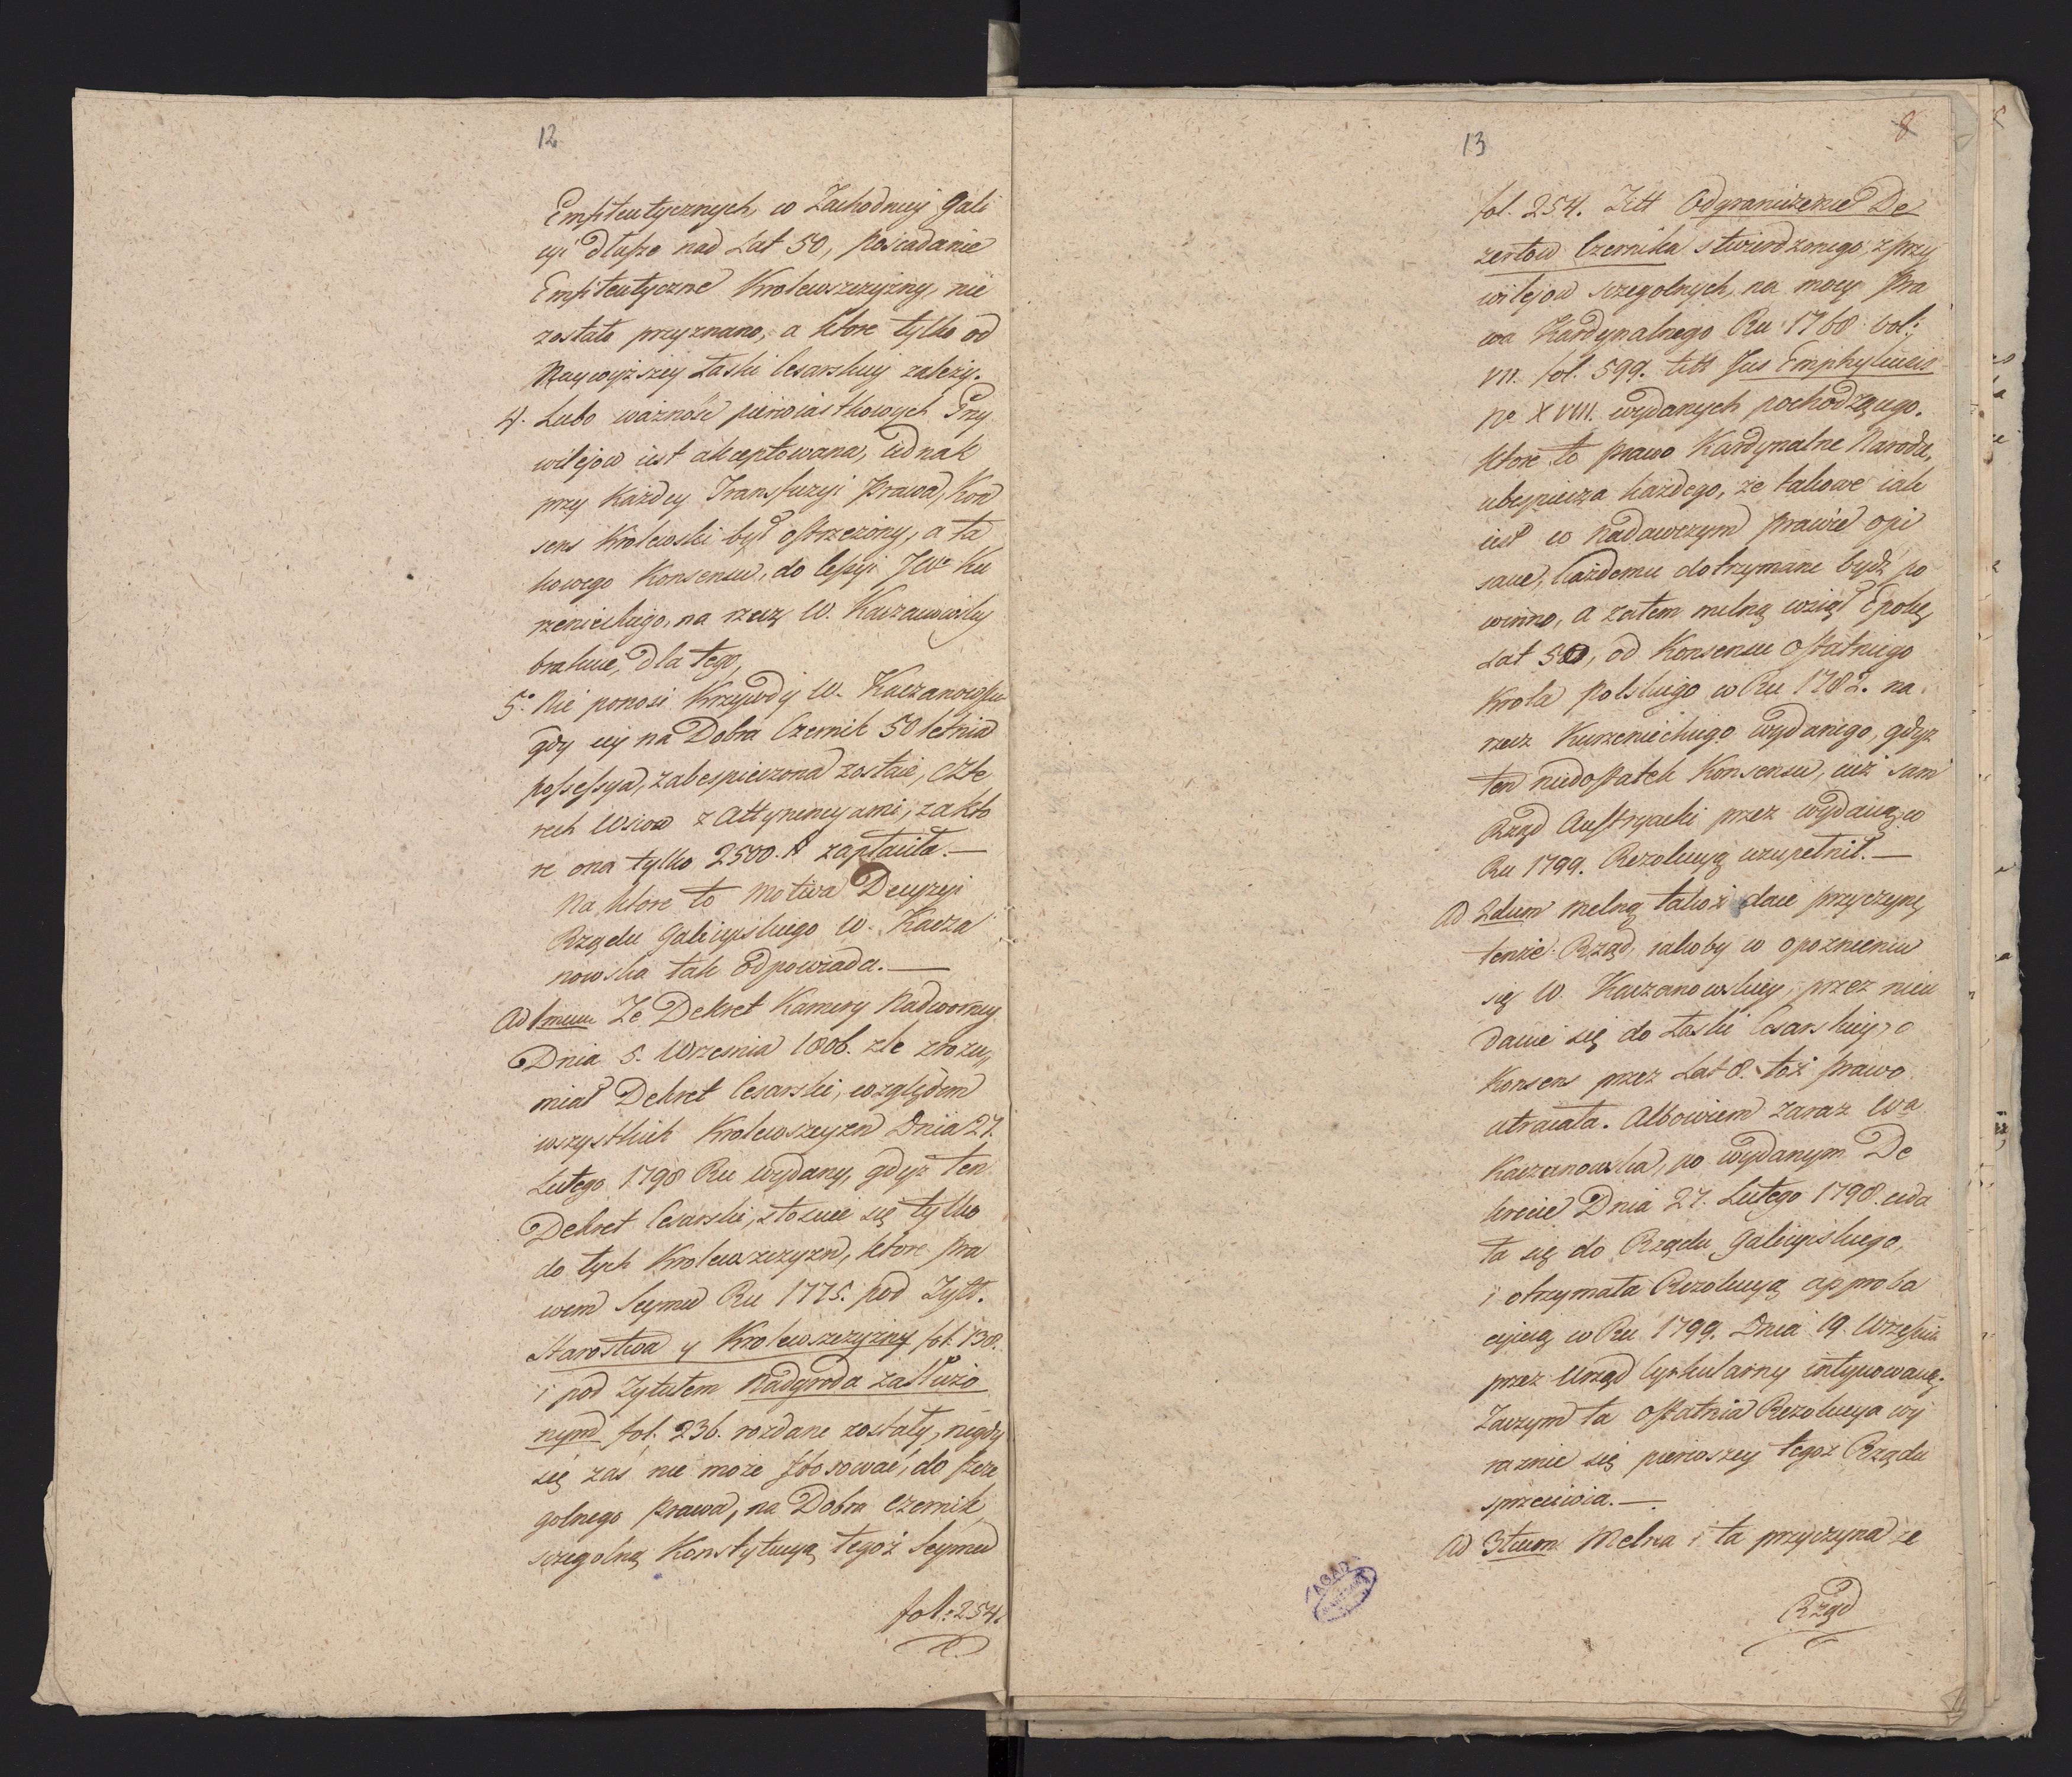 12
Emfiteutycznych, w Zachodniey Gali
cyi dłuższe nad Lat 50, posiadanie
Emfiteutyczne Krolewszczyzny, nie
zostało przyznano, a ktore tylko od
Naywyższey Łaski Cesarskiey zależy.
4. Lubo ważność pierwiastkowych Przy
wilejow iest akceptowana, iednak
przy każdey Transfuzyi Prawa, Kon
sens Krolewski był ostrzeżony, a ta
kowego Konsensu, do Cessyi JWo Ku
rzenieckiego, na rzecz W. Kaczanowskiey
brakuie, dla tego,
5o Nie ponosi Krzywdy W. Kaczanowska
gdy iey na Dobra Czernik 50 letnia
possessya, zabespieczona zostaie, czte
rech Wsiow z Attynencyami, za kto
re ona tylko 2500. # zapłaciła. —
Na ktore to Motiva Decyzyi
Rządu Galicyiskiego W. Kacza
nowska tak odpowiada. —
Ad 1mum Że Dekret Kamery Nadworney
Dnia 5. Wrzesnia 1806. zle zrozu„
miał Dekret Cesarski, względem
wszystkich Krolewszczyzn Dnia 27.
Lutego 1798 Ru wydany, gdyż ten
Dekret Cesarski, stosuie się tylko
do tych Krolewszczyzn, ktore Pra
wem Seymu Ru 1775. pod Tytt.
Starostwa y Krolewszczyzny fol. 138.
i pod Tytułem Nadgroda zasłużo
nym fol. 236. rozdane zostały, nigdy
się zaś nie może stosować, do szcze
golnego Prawa, na Dobra Czernik
szczegolną Konstytucyą tegoż Seymu
fol: 254.
13
8
fol. 254. Titt Odgraniczenie De
zertow Czernika stwierdzonego, z przy
wilejow szczegolnych, na mocy Pra
wa Kardynalnego Ru 1768 vol:
VII. fol. 599. titt Jus Emphyteusis
No XVIII. wydanych pochodzącego.
ktore to prawo Kardynalne Narodu,
ubespiecza każdego, że takowe iak
iest w Nadawczym prawie opi
sane, każdemu dotrzymane bydź po
winno, a zatem mylną wziął Epokę
Lat 50, od Konsensu ostatniego
Krola Polskiego w Ru 1782. na
rzecz Kurzenieckiego wydanego, gdyż
ten niedostatek Konsensu, iuż sam
Rząd Austryacki przez wydaną w
Ru 1799. Rezolucyą uzupełnił. —
Ad 2dum Mylną takoż daie przyczynę
tenże Rząd, iakoby w opoznieniu
się W. Kaczanowskiey, przez nieu
danie się do Łaski Cesarskiey, o
Konsens przez Lat 8. toż prawo
utraciła. Albowiem zaraz Wa
Kaczanowska, po wydanym De
krecie Dnia 27. Lutego 1798. uda
ła się do Rządu Galicyiskiego,
i otrzymała Rezolucyą approba
cyiną w Ru 1799. Dnia 19. Wrzesnia
przez Urząd Cyrkularny intymowaną.
Zaczym ta ostatnia Rezolucya wy
raznie się pierwszey tegoż Rządu
sprzeciwia. —
Ad 3tium Mylna i ta przyczyna że
AGAD
Rząd